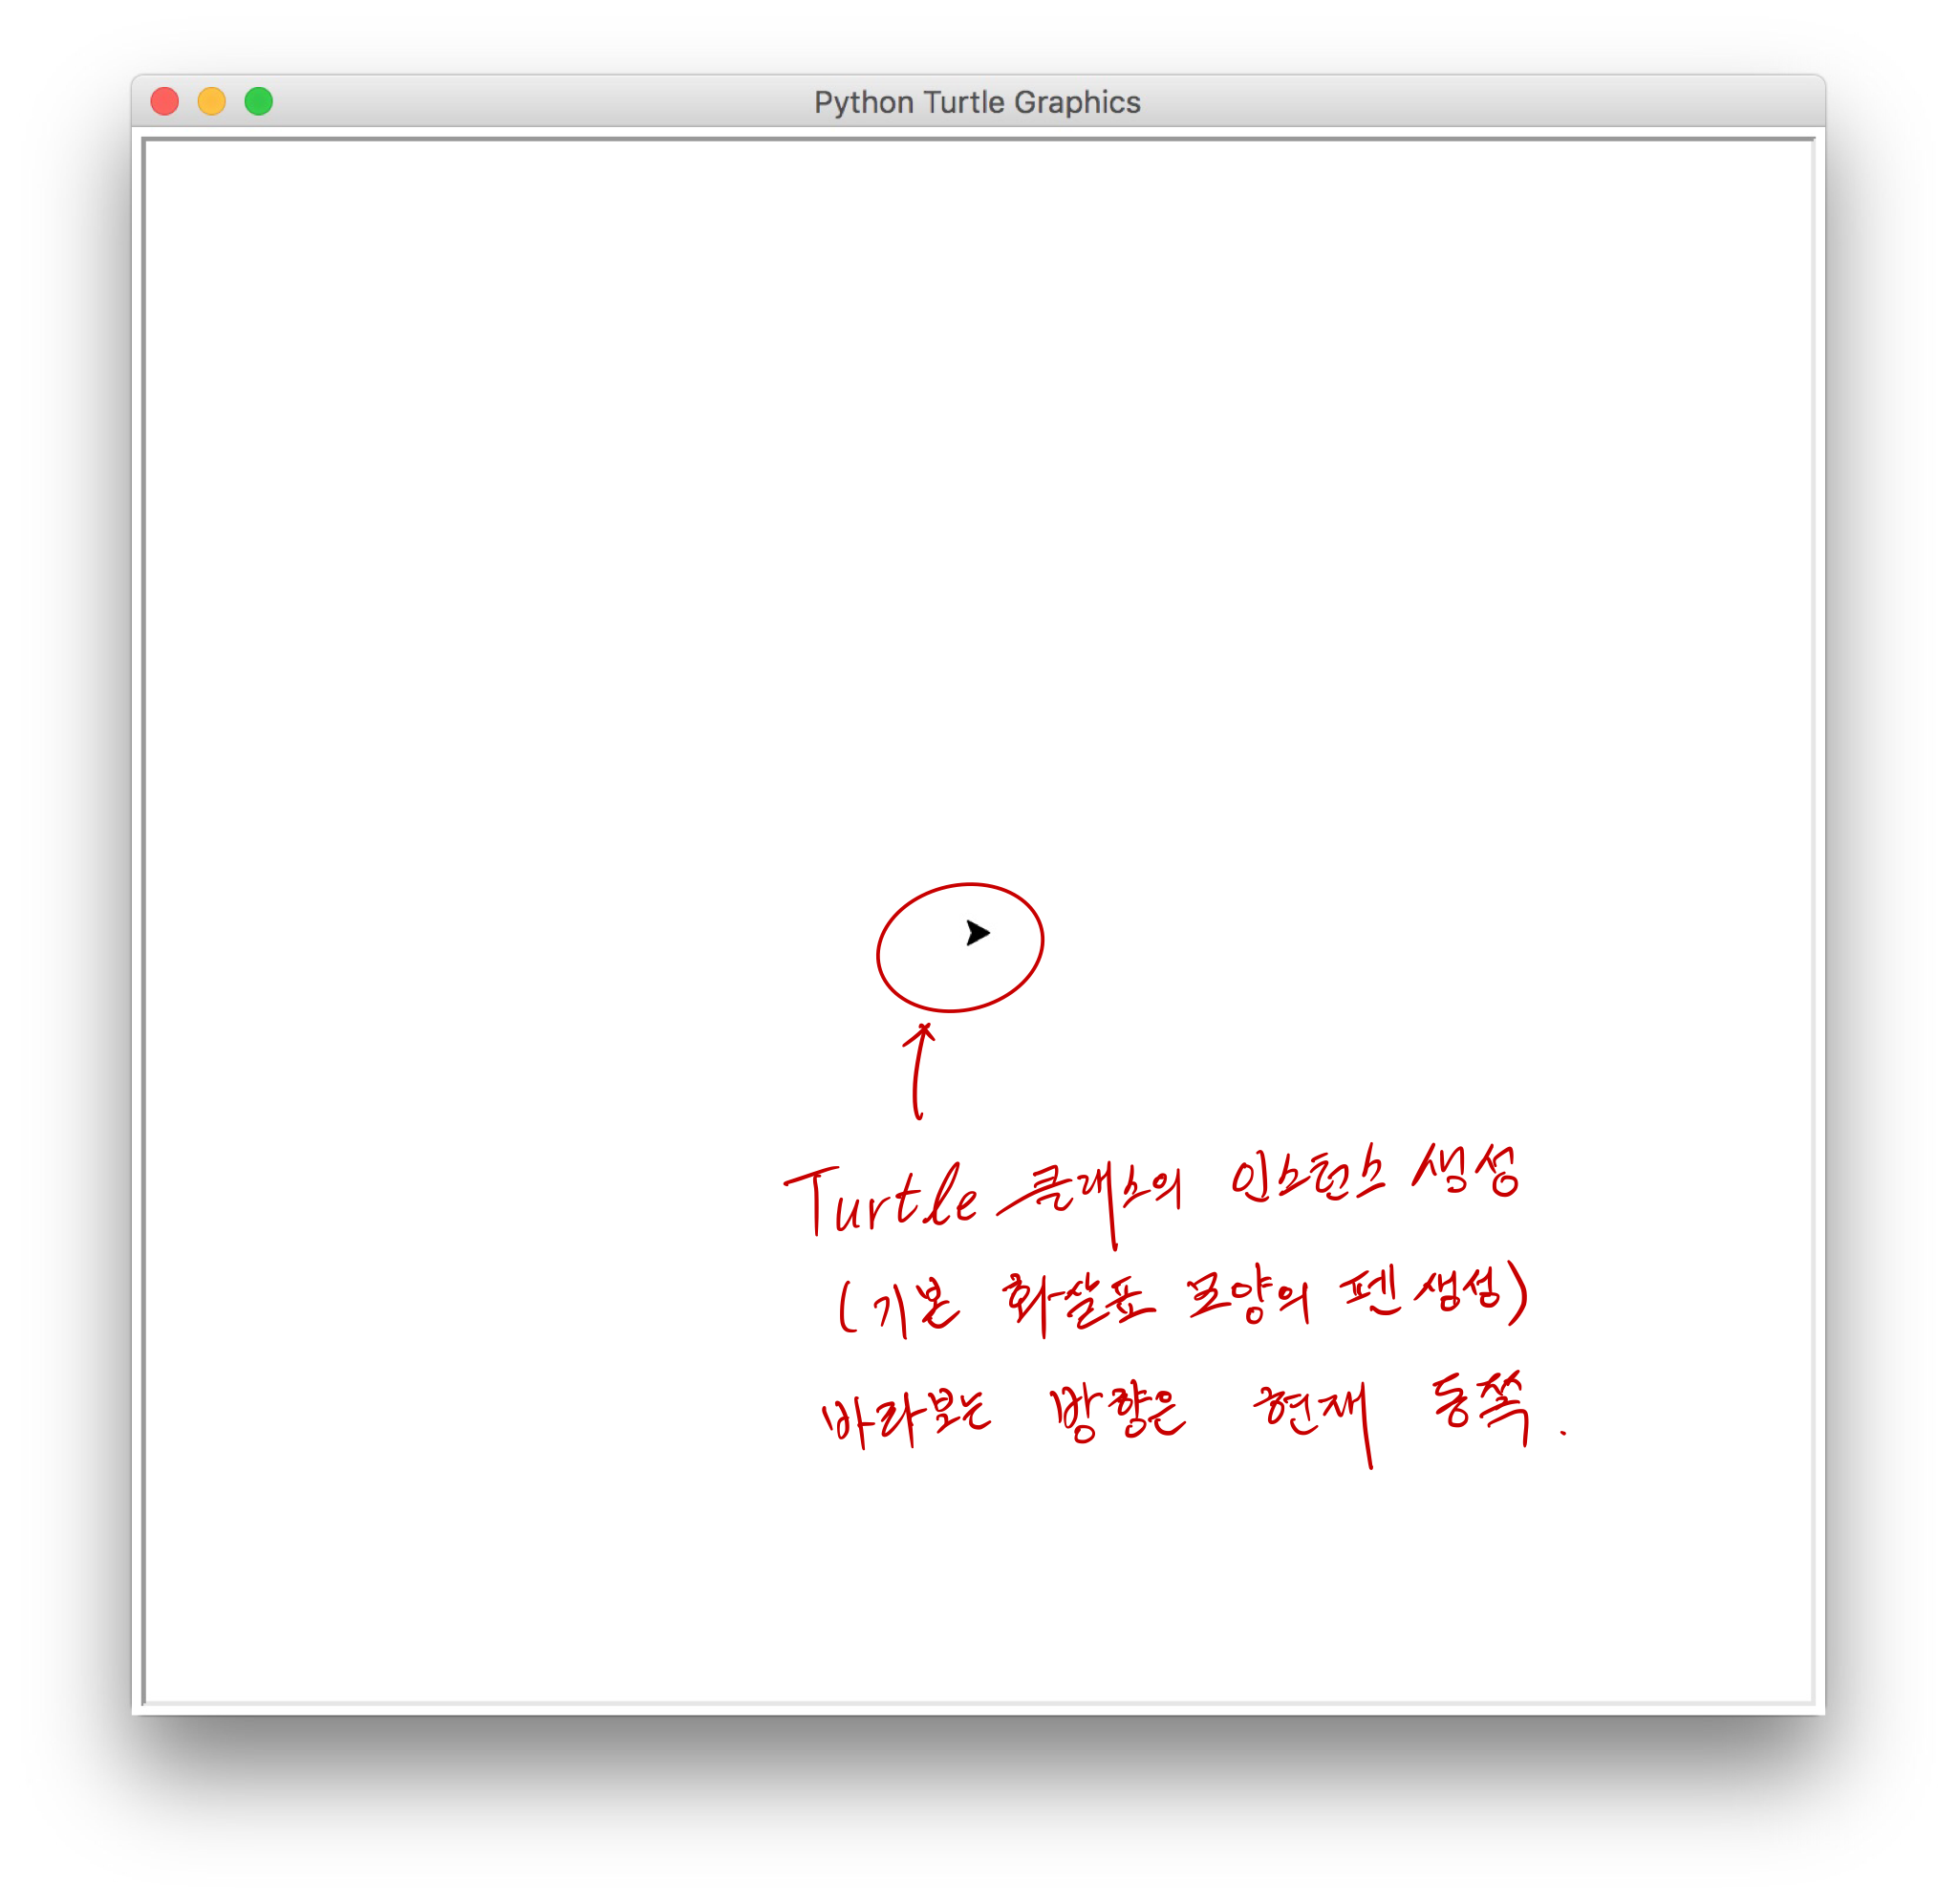 Python Turtle Graphics
Turtle 클래스의 인스턴스 생성
(기본 화살표 모양의 펜 생성)
바라보는 방향은 현재 동쪽.